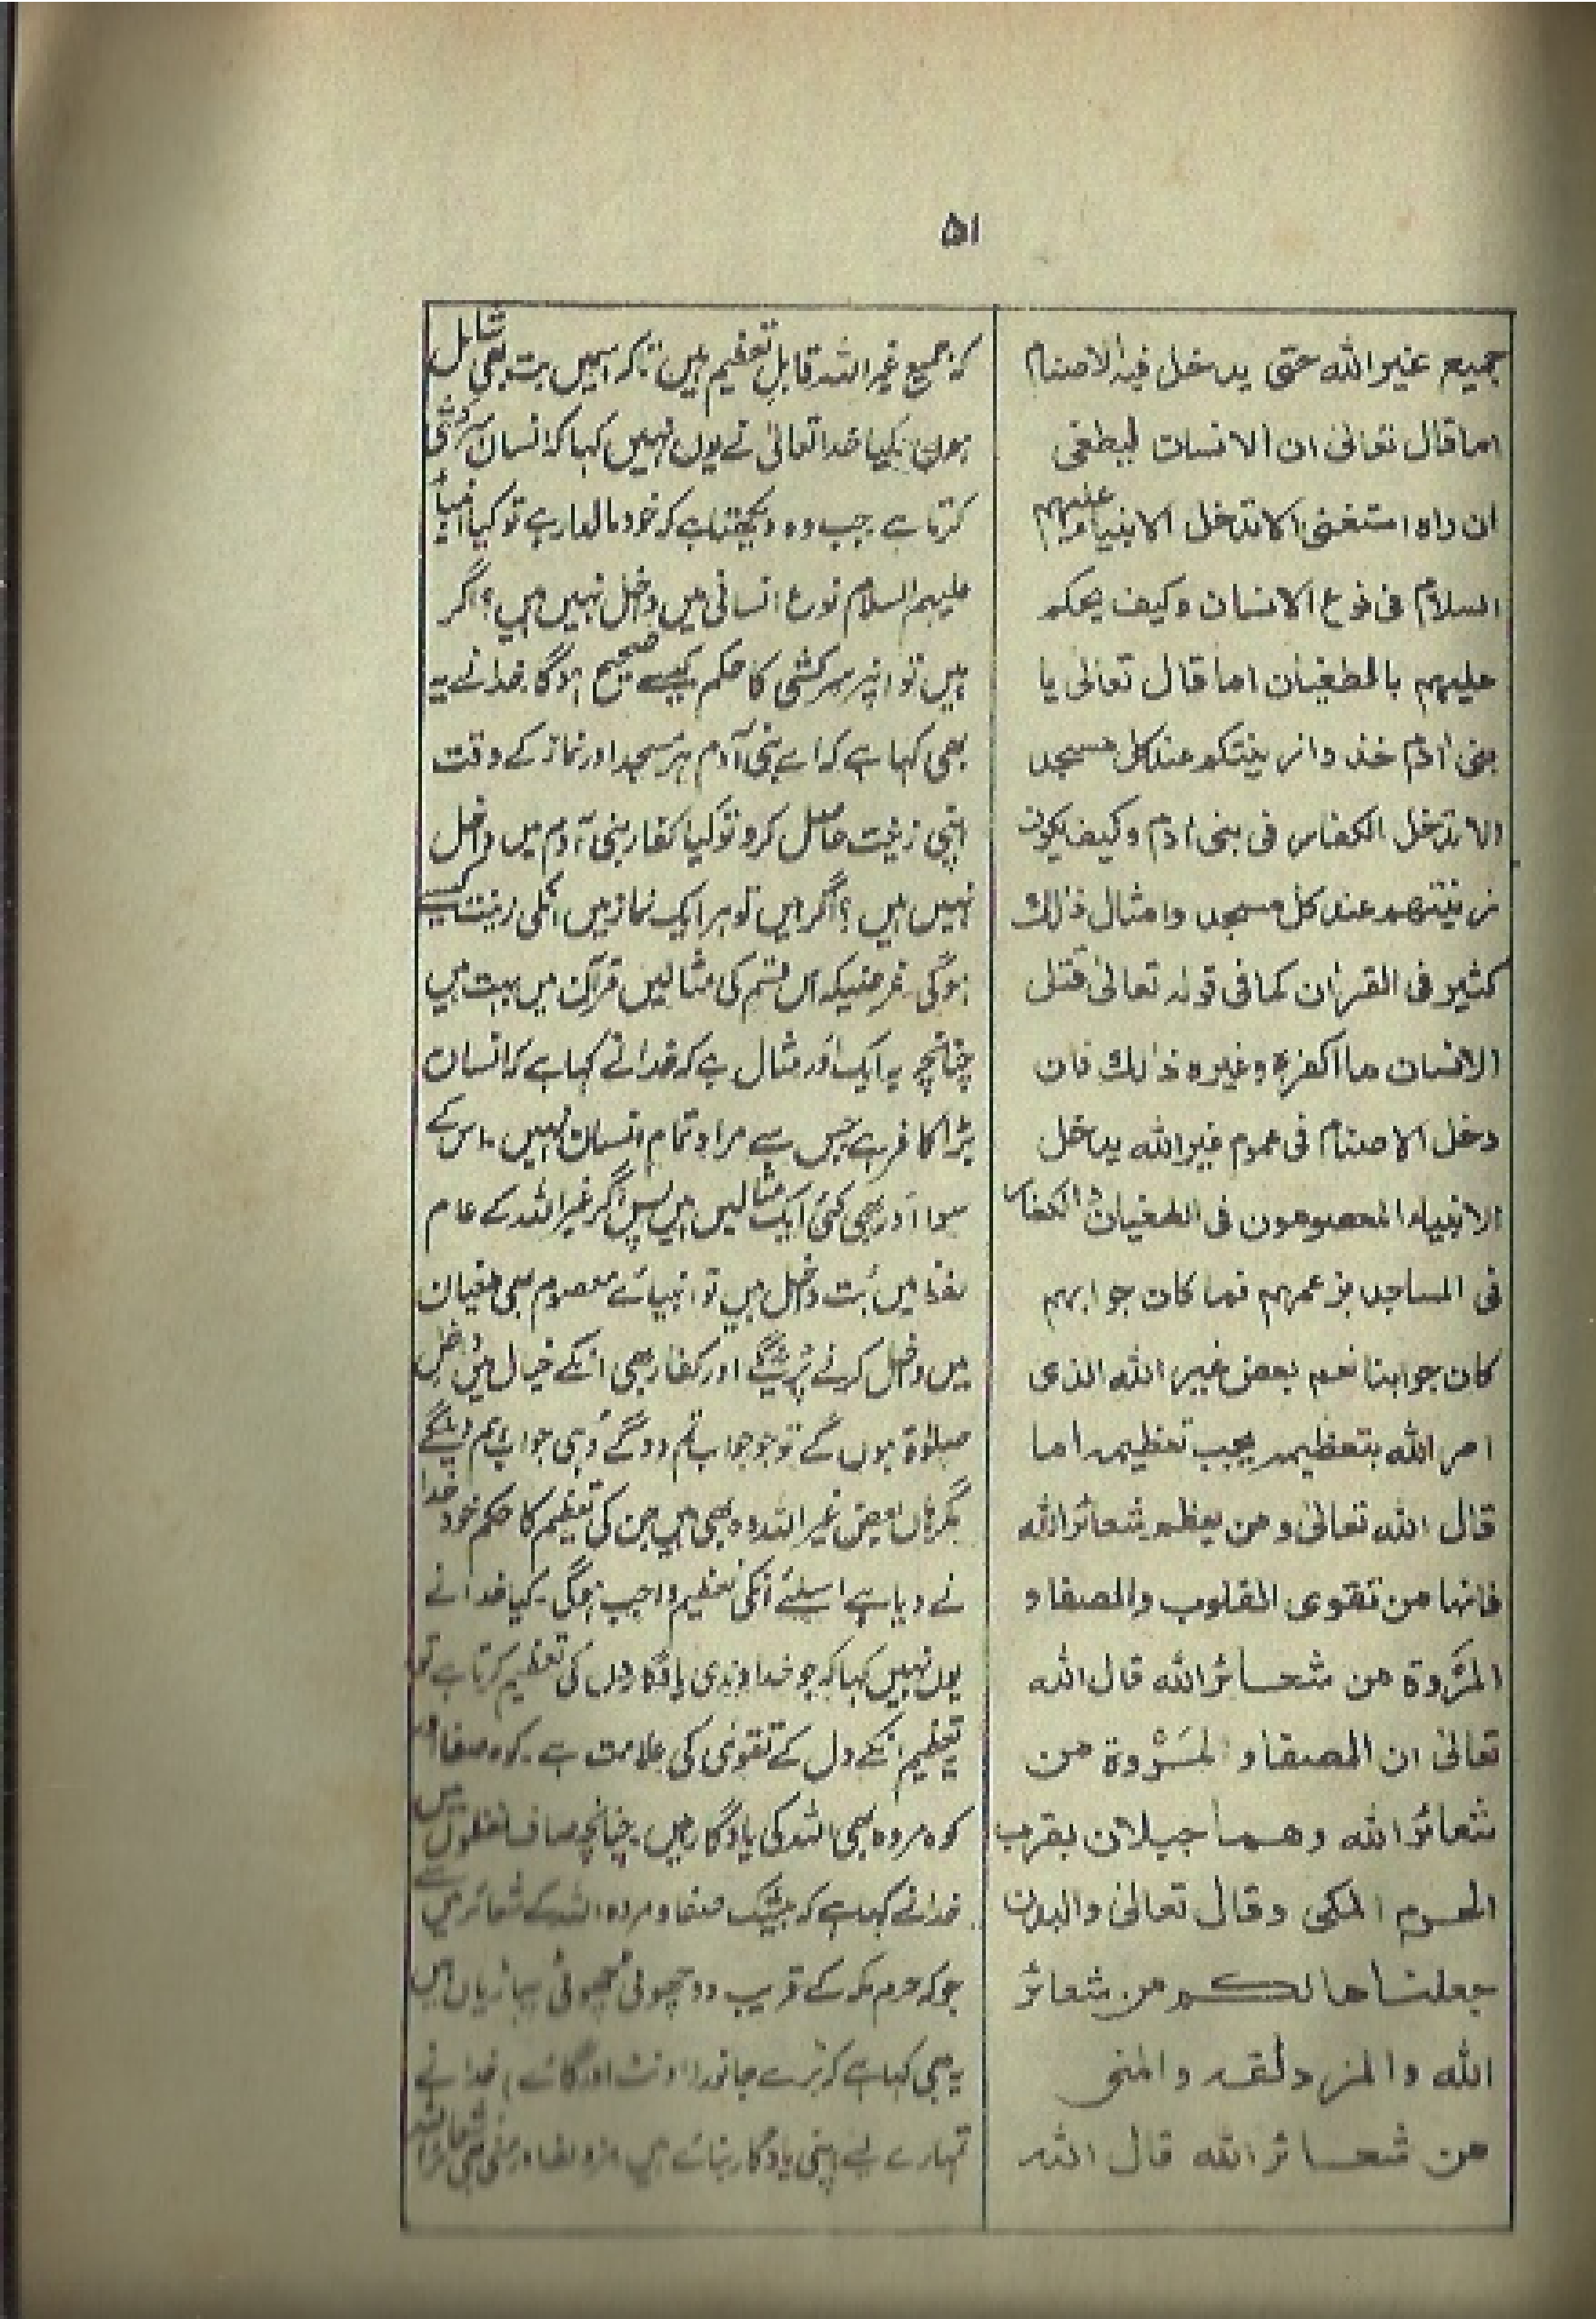 ۵۱
جميع غير الله حتى يدخل فيه الاصنام
اما قال تعالىٰ ان الانسان ليطغى
ان راه استغنى الا تدخل الانبياء عليهم
السلام فى نوع الانسان وكيف يحكم
عليهم بالطغيان اما قال تعالىٰ يا
بنى اٰدم خذوا زينتكم عند كل مسجد
الا تدخل الكفار فى بنى اٰدم وكيف يكون
زينتهم عند كل مسجد وامثال ذالك
كثير فى القراٰن كما فى قوله تعالىٰ قتل
الانسان ما اكفره وغيره ذالك فان
دخل الاصنام فى عموم غير الله يدخل
الانبياء المعصومون فى الطغيان والكفار
فى المساجد بزعمهم فما كان جوابهم
كان جوابنا نعم بعض غير الله الذى
امر الله بتعظيمه يجب تعظيمه اما
قال الله تعالىٰ ومن يعظم شعائر الله
فانها من تقوى القلوب والصفا و
المَرْوة من شعائر الله قال الله
تعالىٰ ان الصفا و المَرْوة من
شعائر الله وهما جبلان بقرب
الحرم المكى وقال تعالىٰ والبدن
جعلناها لكم من شعائر
الله والمزدلفه والمنى
من شعائر الله قال الله
کہ جمیع غیر اللہ قابل تعظیم ہیں تاکہ اسمیں بت بھی شامل
ہوں کیا خدا تعالیٰ نے یوں نہیں کہا کہ انسان سرکشی
کرتا ہے جب وہ دیکھتا ہے کہ خود مالدار ہے تو کیا انبیاء
علیہم السلام نوع انسانی میں داخل نہیں ہیں؟ اگر
ہیں تو انپر سرکشی کا حکم کیسے صحیح ہوگا۔ خدا نے یہ
بھی کہا ہے کہ اے بنی آدم ہر مسجد اور نماز کے وقت
اپنی زینت حاصل کرو تو کیا کفار بنی آدم میں داخل
نہیں ہیں؟ اگر ہیں تو ہر ایک نماز میں انکی زینت کیسے
ہوگی۔ غرضیکہ اس قسم کی مثالیں قرآن میں بہت ہیں
چنانچہ یہ ایک اور مثال ہے کہ خدا نے کہا ہے کہ انسان
بڑا کافر ہے جس سے مراد تمام انسان نہیں۔ اس کے
سوا اَور بھی کئی ایک مثالیں ہیں پس اگر غیر اللہ کے عام
لفظ میں بُت داخل ہیں تو انبیائے معصوم بھی طغیان
میں داخل کرنے پڑینگے اور کفار بھی انکے خیال میں داخل
صلوٰۃ ہوں گے تو جو جواب تم دو گے وُہی جواب ہم دینگے
مگر ہاں بعض غیر اللہ وہ بھی ہیں جن کی تعظیم کا حکم خود خدا
نے دیا ہے اسلئے انکی تعظیم واجب ہوگی۔ کیا خدا نے
یوں نہیں کہا کہ جو خداوندی یادگاروں کی تعظیم کرتا ہے تو
تعظیم انکے دل کے تقویٰ کی علامت ہے۔ کوہ صفا اور
کوہ مروہ بھی اللہ کی یادگار ہیں۔ چنانچہ صاف لفظوں میں
خدا نے کہا ہے کہ بیشک صفا و مروہ اللہ کے شعائر میں سے
جو کہ حرم مکہ کے قریب دو چھوٹی چھوٹی پہاڑیاں ہیں
یہ بھی کہا ہے کہ بڑے جانور (اونٹ اور گائے) خدا نے
تمہارے لیے اپنی یادگار بنائے ہیں مزدلفہ اور منی بھی شعائر اللہ